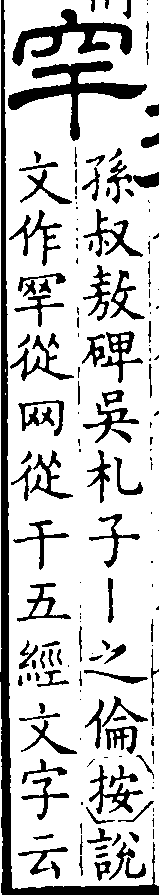 罕
孫叔敖碑吳札子丨之倫按說
文作䍐從网從干五經文字云